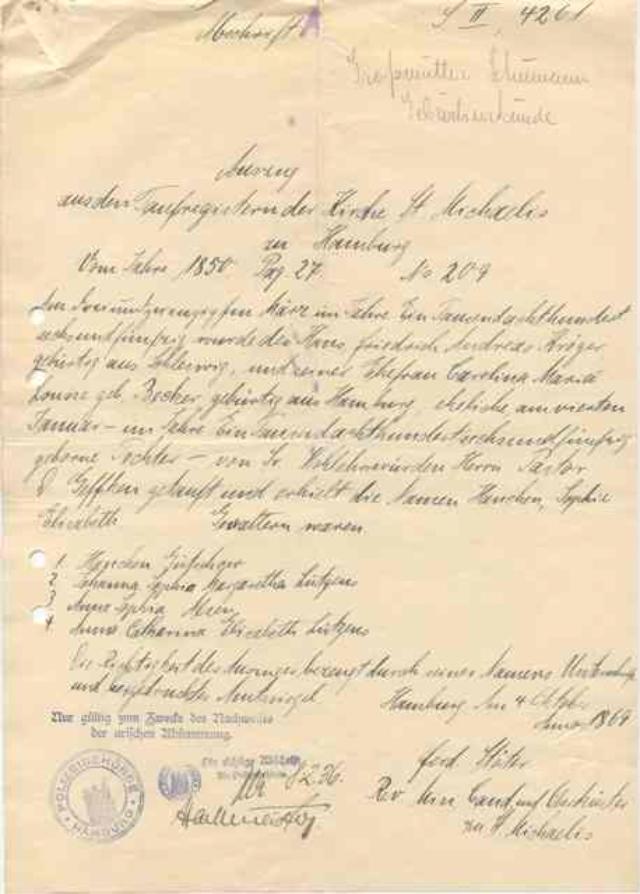 Abschrift
J II, 4261
Großmutter Thümann
Geburtsurkunde
Auszug
aus den Taufregistern der Kirche St Michaelis
zu Hamburg
Vom Jahre 1850 Pag 27 No 209
Am dreiundzwanzigsten März im Jahre Ein Tausendachthundert
sechsundfünfzig wurde den Hans Friedrich Andreas Kröger
gebürtig aus Schleswig, und seiner Ehefrau Carolina Maria
Louise geb. Becker, gebürtig aus Hamburg, eheliche am vierten
Januar – im Jahre Eintausendachthundertsechsundfünfzig
geborne Tochter – von Sr. Wohlehrwürden Herrn Pastor
D Geffken getauft und erhielt die Namen Hanchen, Sophie
Elisabeth Gevattern waren.
1. Hanchen
2. Johanna Sophia Margaretha Lütgens
3. Anna Sophia
4. Anna Catharina Elisabeth Lütgens
Die Richtigkeit des Auszuges bezeugt durch seines Namens Unterschrift
und beigedrucktes Amtssiegel
Hamburg, den 4 Oktober
Anno 1869
Nur gültig zum Zwecke des Nachweises
der arischen Abstammung.
Für richtige Abschrift
POLIZEIBEHÖRDE
HAMBURG
2.36.
Ferd. Stöter
Rev Min Cand und Oberküster
zu St Michaelis